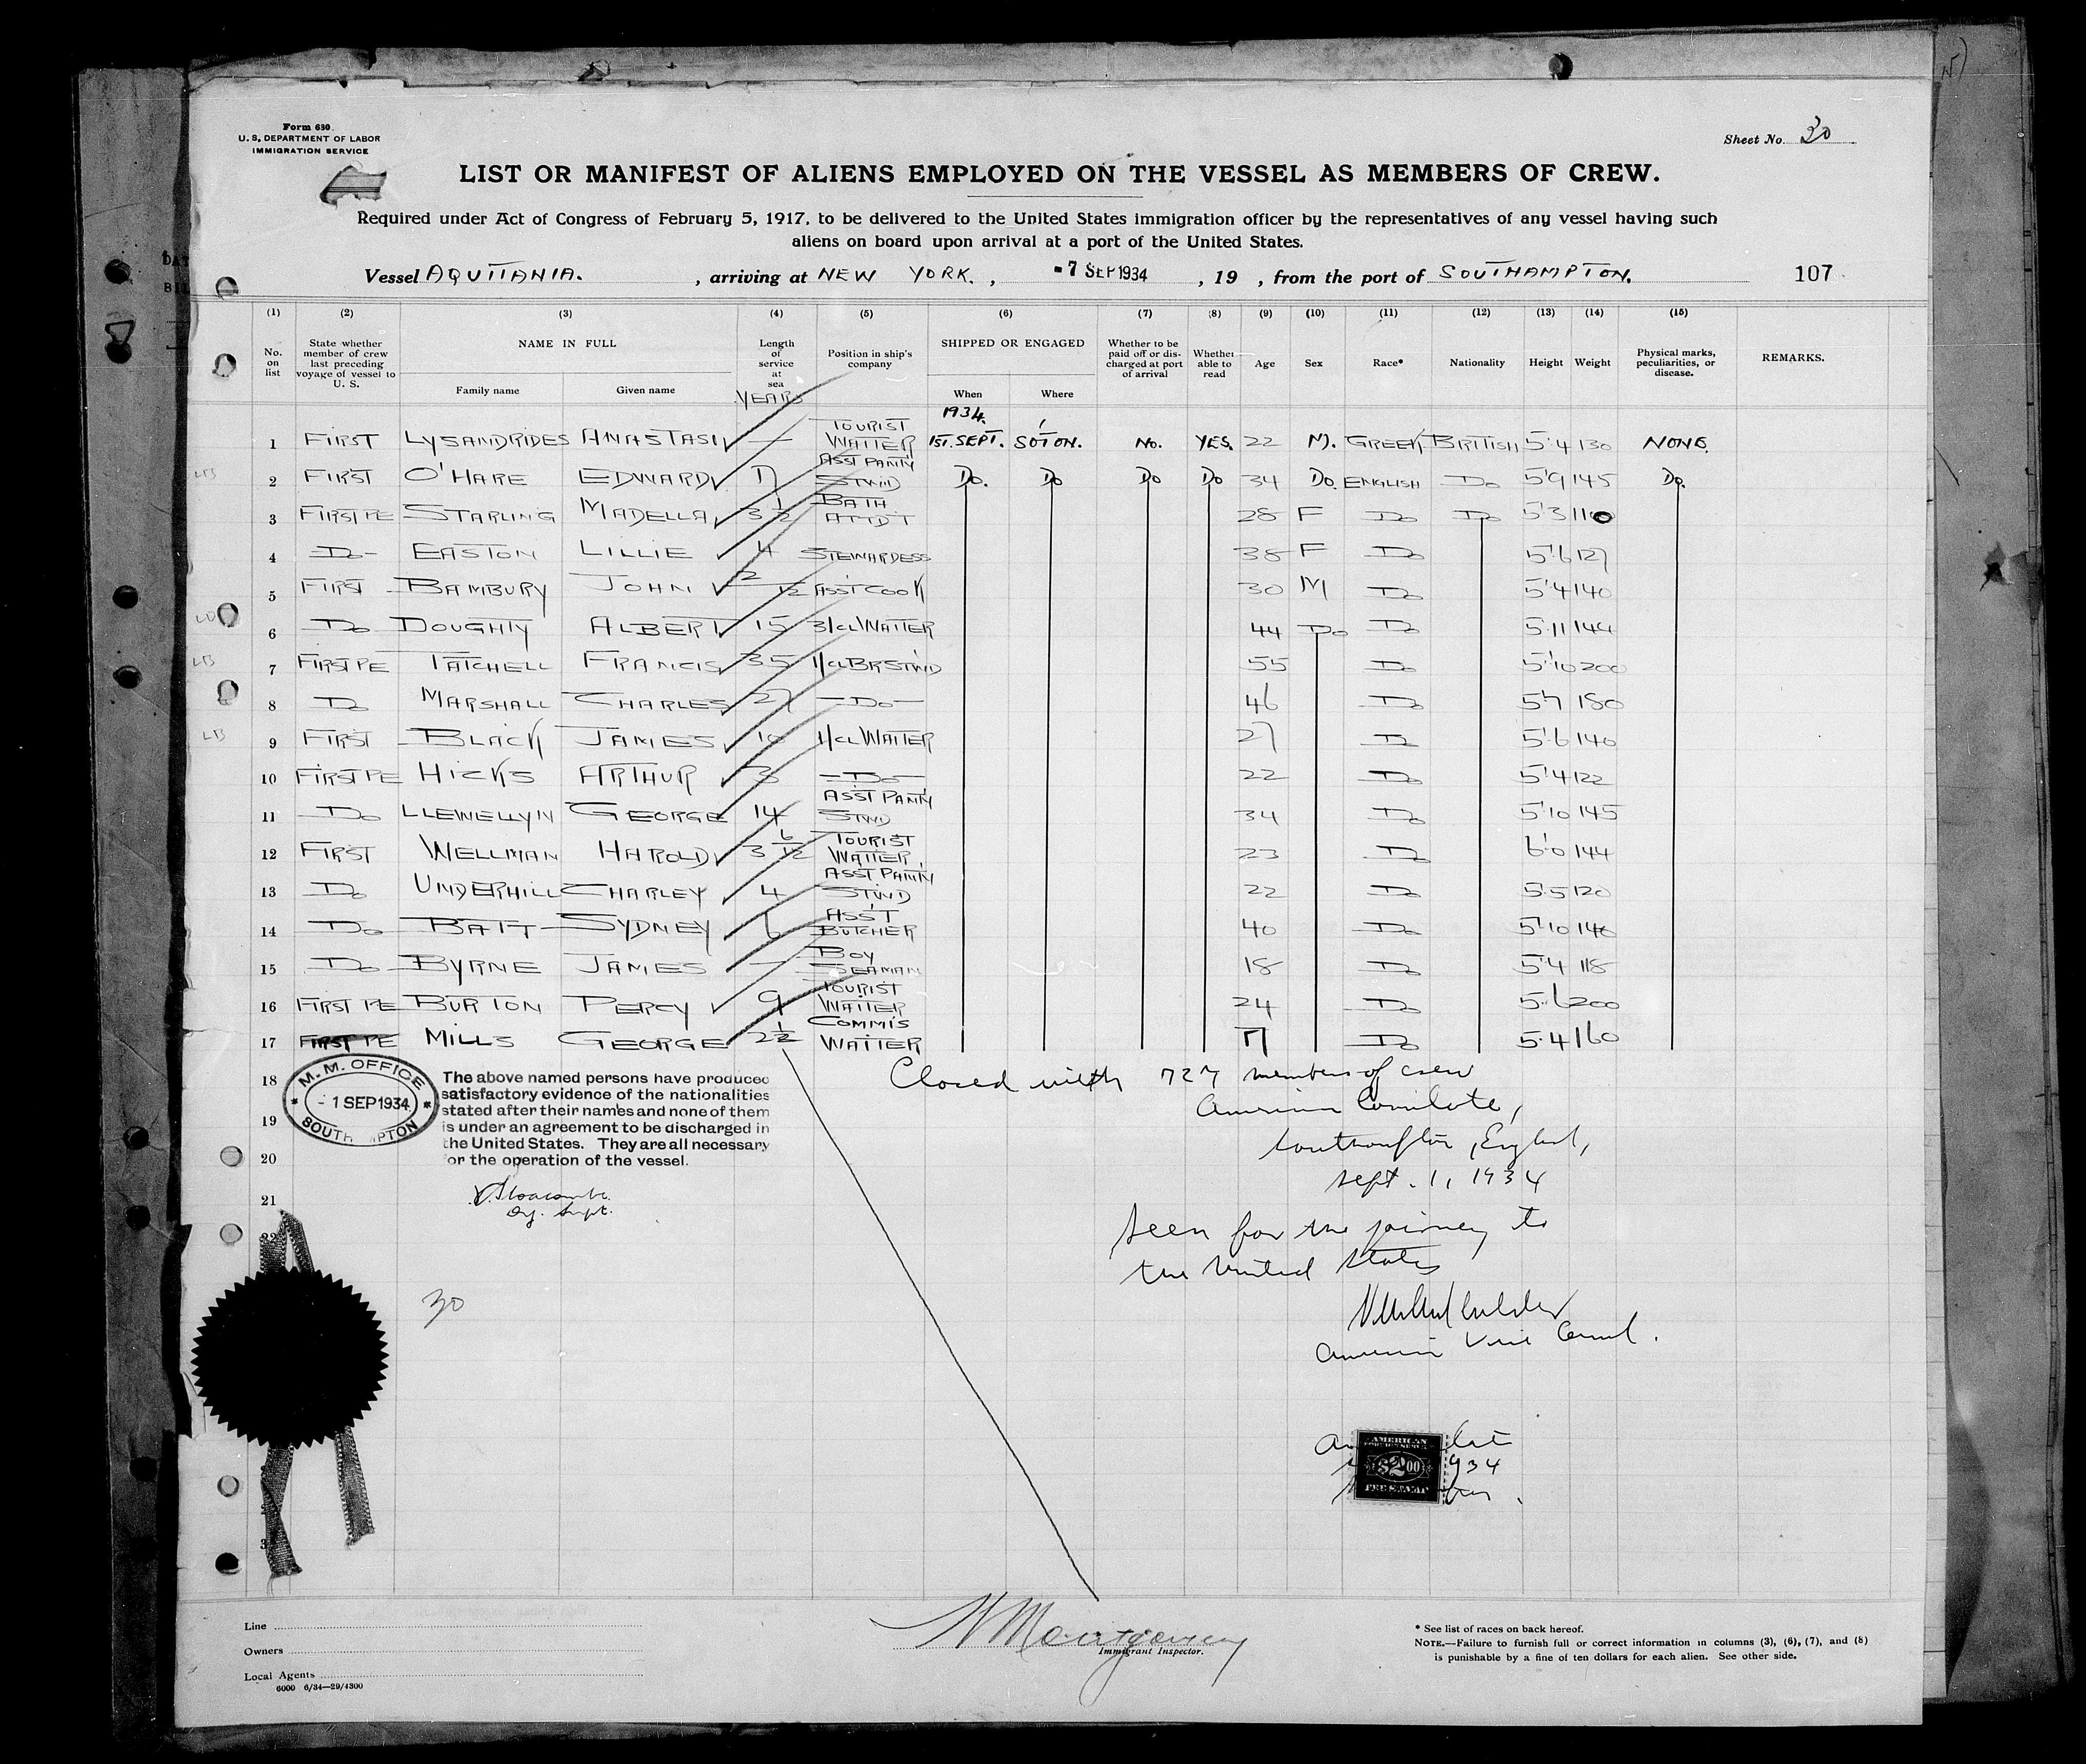 Form 680
U. S. DEPARTMENT OF LABOR
IMMIGRATION SERVICE
Sheet No. 30
LIST OR MANIFEST OF ALIENS EMPLOYED ON THE VESSEL AS MEMBERS OF CREW.
Required under Act of Congress of February 5, 1917, to be delivered to the United States immigration officer by the representatives of any vessel having such
aliens on board upon arrival at a port of the United States.
Vessel AQUITANIA. , arriving at NEW YORK. , -7 SEP 1934 , 19 , from the port of SOUTHAMPTON. 107
(1) (2) (3) (4) (5) (6) (7) (8) (9) (10) (11) (12) (13) (14) (15)
No. on list State whether member of crew last preceding voyage of vessel to U. S. NAME IN FULL Length of service at sea Position in ship's company SHIPPED OR ENGAGED Whether to be paid off or discharged at port of arrival Whether able to read Age Sex Race* Nationality Height Weight Physical marks, peculiarities, or disease. REMARKS.
Family name Given name YEARS When Where
1934.
1 FIRST LYSANDRIDES ANASTASI — TOURIST WAITER 1ST. SEPT. SOTON. No. YES. 22 M. GREEK BRITISH 5'4 130 NONE.
2 FIRST O'HARE EDWARD 17 ASST PANTY STWD Do. Do Do Do 34 Do. ENGLISH Do 5'9 145 Do.
3 FIRST PE STARLING MADELLA 3 1/2 BATH ATTDT 28 F Do Do 5'3 110
4 Do EASTON LILLIE 4 STEWARDESS 38 F Do 5'6 127
5 FIRST BAMBURY JOHN 2/12 ASST COOK 30 M Do 5'4 140
6 Do DOUGHTY ALBERT 15 3/CL WAITER 44 Do Do 5'11 144
7 FIRST PE TATCHELL FRANCIS 35 1/CL BR STWD 55 Do 5'10 200
8 Do MARSHALL CHARLES 27 —Do— 46 Do 5'7 180
9 FIRST BLACK JAMES 10 1/CL WAITER 27 Do 5'6 140
10 FIRST PE HICKS ARTHUR 3 —Do— 22 Do 5'4 122
11 Do LLEWELLYN GEORGE 14 ASST PANTY STWD 34 Do 5'10 145
12 FIRST WELLMAN HAROLD 3 6/12 TOURIST WAITER 23 Do 6'0 144
13 Do UNDERHILL CHARLEY 4 ASST PANTY STWD 22 Do 5'5 120
14 Do BATT SYDNEY 6 ASS'T BUTCHER 40 Do 5'10 140
15 Do BYRNE JAMES — BOY SEAMAN 18 Do 5'4 118
16 FIRST PE BURTON PERCY 9 TOURIST WAITER 24 Do 5'6 200
17 FIRST PE MILLS GEORGE 2 1/2 COMMIS WAITER 17 Do 5'4 160
18
19
20
21
M. M. OFFICE
- 1 SEP 1934
The above named persons have produced
satisfactory evidence of the nationalities
stated after their names and none of them
is under an agreement to be discharged in
the United States. They are all necessary
for the operation of the vessel.
Dy. Supt.
Closed with 727 members of crew
American Consulate,
Southampton, England,
Sept. 1, 1934
Seen for the journey to
the United States
American Vice Consul.
30
AMERICAN
$2.00
FEE STAMP
934
Line
Owners
Local Agents
6000 6/34—29/4300
Montgomery
Immigrant Inspector.
* See list of races on back hereof.
NOTE.—Failure to furnish full or correct information in columns (3), (6), (7), and (8)
is punishable by a fine of ten dollars for each alien. See other side.